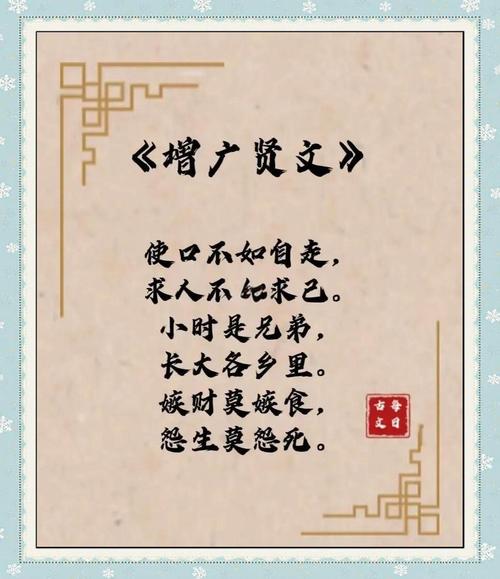 《增广贤文》
使口不如自走，
求人不如求己。
小时是兄弟，
长大各乡里。
嫉财莫嫉食，
怨生莫怨死。
每日
古文